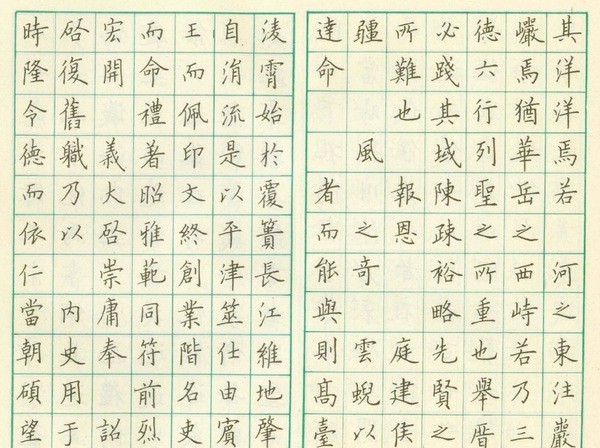 其洋洋焉若 河之東注巖
巖焉猶華岳之西峙若乃三
德六行列聖之所重也舉厝
必踐其域陳疎裕略先賢之
所難也 報恩 庭建侯
疆 風 之奇 雲蜺以
達命 者而能與則高臺
淩霄始於覆簣長江維地肇
自涓流是以平津筮仕由賓
王而佩印文終創業階名史
而命禮著昭雅範同符前烈
宏開 義大啓崇庸奉詔
啓復舊職乃以 內史用于
時隆令德而依仁當朝碩望